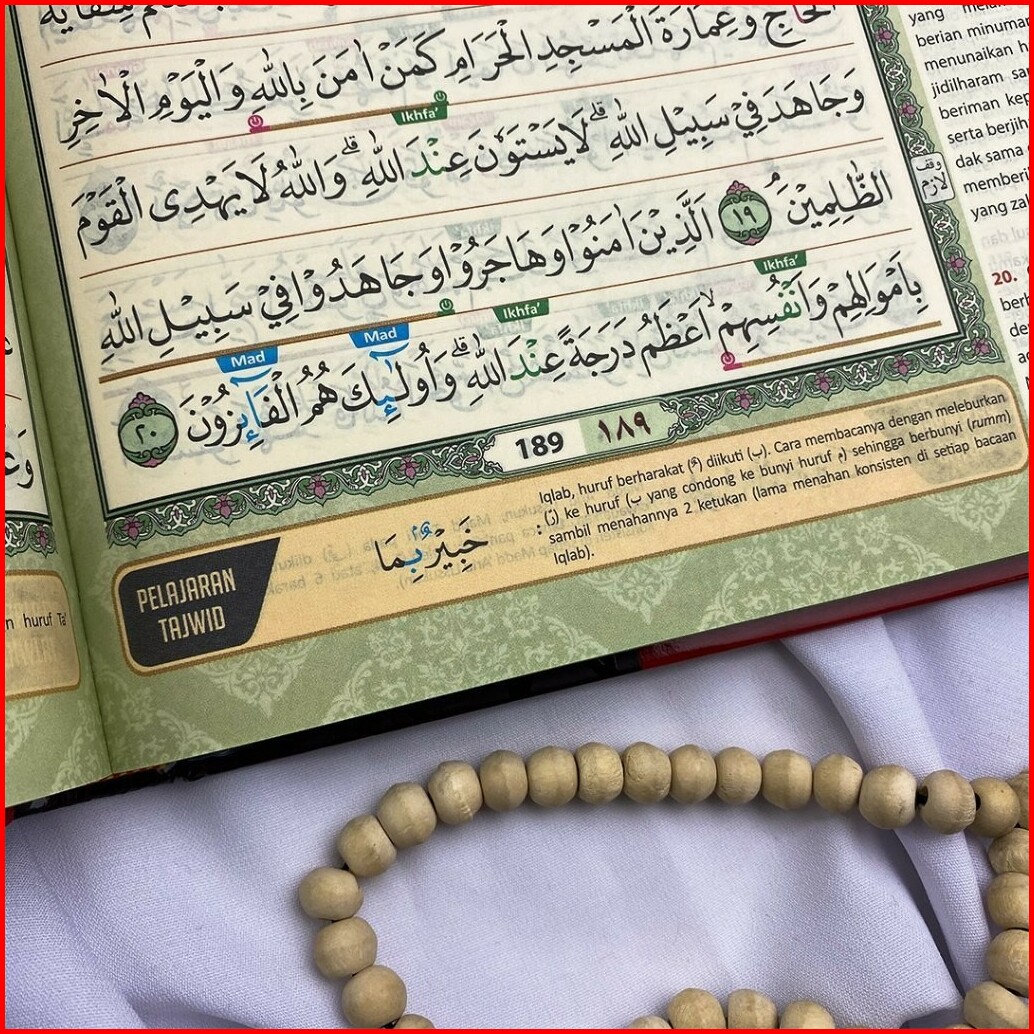 الْحَاجِّ وَعِمَارَةَ الْمَسْجِدِ الْحَرَامِ كَمَنْ اٰمَنَ بِاللّٰهِ وَالْيَوْمِ الْاٰخِرِ
Ikhfa'
وَجَاهَدَ فِيْ سَبِيْلِ اللّٰهِ ۗ لَا يَسْتَوٗنَ عِنْدَ اللّٰهِ ۗ وَاللّٰهُ لَا يَهْدِى الْقَوْمَ
الظّٰلِمِيْنَ ۘ ١٩ اَلَّذِيْنَ اٰمَنُوْا وَهَاجَرُوْا وَجَاهَدُوْا فِيْ سَبِيْلِ اللّٰهِ
Ikhfa' Ikhfa' Mad Mad
بِاَمْوَالِهِمْ وَاَنْفُسِهِمْۙ اَعْظَمُ دَرَجَةً عِنْدَ اللّٰهِ ۗ وَاُولٰۤىِٕكَ هُمُ الْفَاۤىِٕزُوْنَ ٢٠
189 ١٨٩
PELAJARAN
TAJWID
خَبِيْرٌۢ بِمَا
:
Iqlab, huruf berharakat (ــٌ) diikuti (ب). Cara membacanya dengan meleburkan
(نْ) ke huruf (ب yang condong ke bunyi huruf م) sehingga berbunyi (rumm)
sambil menahannya 2 ketukan (lama menahan konsisten di setiap bacaan
Iqlab).
وقف
لازم
yang
berian minuman
menunaikan
jidilharam
beriman
serta berjih
dak sama
memberi
yang zal
20.
n huruf Ta'